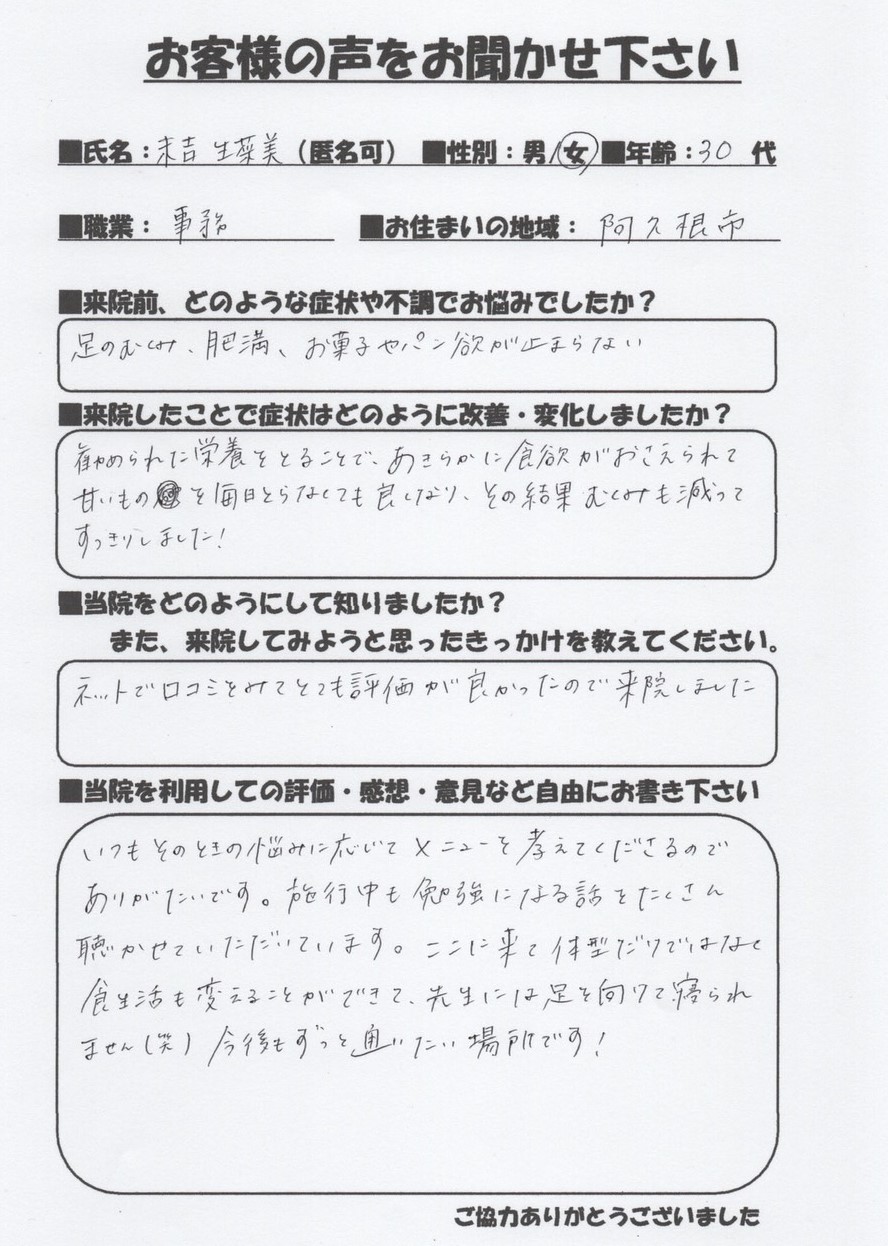 お客様の声をお聞かせ下さい
■氏名：末吉 生菜美（匿名可） ■性別：男/女 ■年齢：30 代
■職業：事務 ■お住まいの地域：阿久根市
■来院前、どのような症状や不調でお悩みでしたか？
足のむくみ、肥満、お菓子やパン欲が止まらない
■来院したことで症状はどのように改善・変化しましたか？
勧められた栄養をとることで、あきらかに食欲がおさえられて
甘いものを毎日とらなくても良くなり、その結果むくみも減って
すっきりしました！
■当院をどのようにして知りましたか？
また、来院してみようと思ったきっかけを教えてください。
ネットで口コミをみてとても評価が良かったので来院しました
■当院を利用しての評価・感想・意見など自由にお書き下さい
いつもそのときの悩みに応じてメニューを考えてくださるので
ありがたいです。施行中も勉強になる話をたくさん
聴かせていただいています。ここに来て体型だけではなく
食生活も変えることができて、先生には足を向けて寝られ
ません（笑）今後もずっと通いたい場所です！
ご協力ありがとうございました